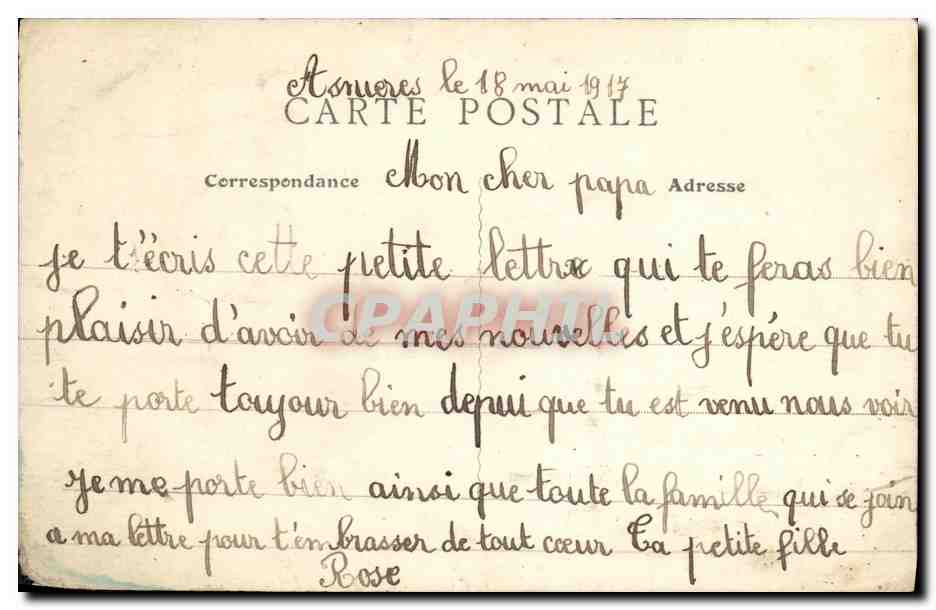 Asnieres le 18 mai 1917
CARTE POSTALE
Correspondance Mon cher papa Adresse
je t'écris cette petite lettre qui te feras bien
CPAPHIL
plaisir d'avoir de mes nouvelles et j'éspére que tu
te porte toujour bien depui que tu est venu nous voir
je me porte bien ainsi que toute la famille qui se join
a ma lettre pour t'embrasser de tout cœur Ta petite fille
Rose